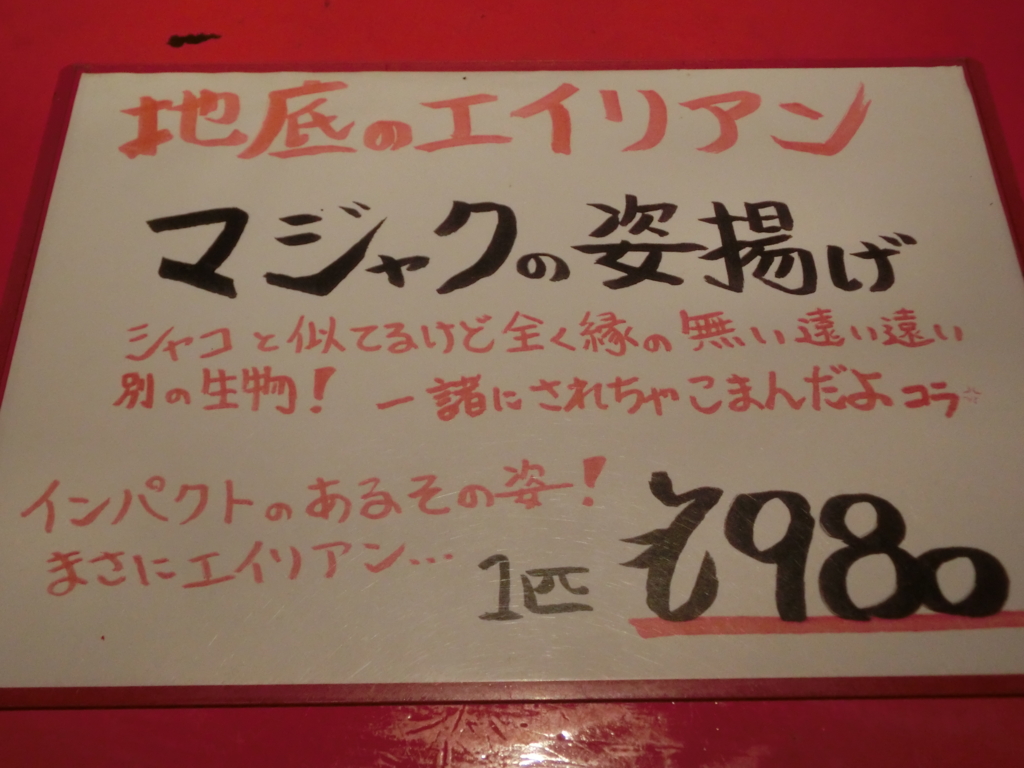 地底のエイリアン
マジャクの姿揚げ
シャコと似てるけど全く縁の無い遠い遠い
別の生物! 一諸にされちゃこまんだよコラ
インパクトのあるその姿!
まさにエイリアン…
1匹 ¥980